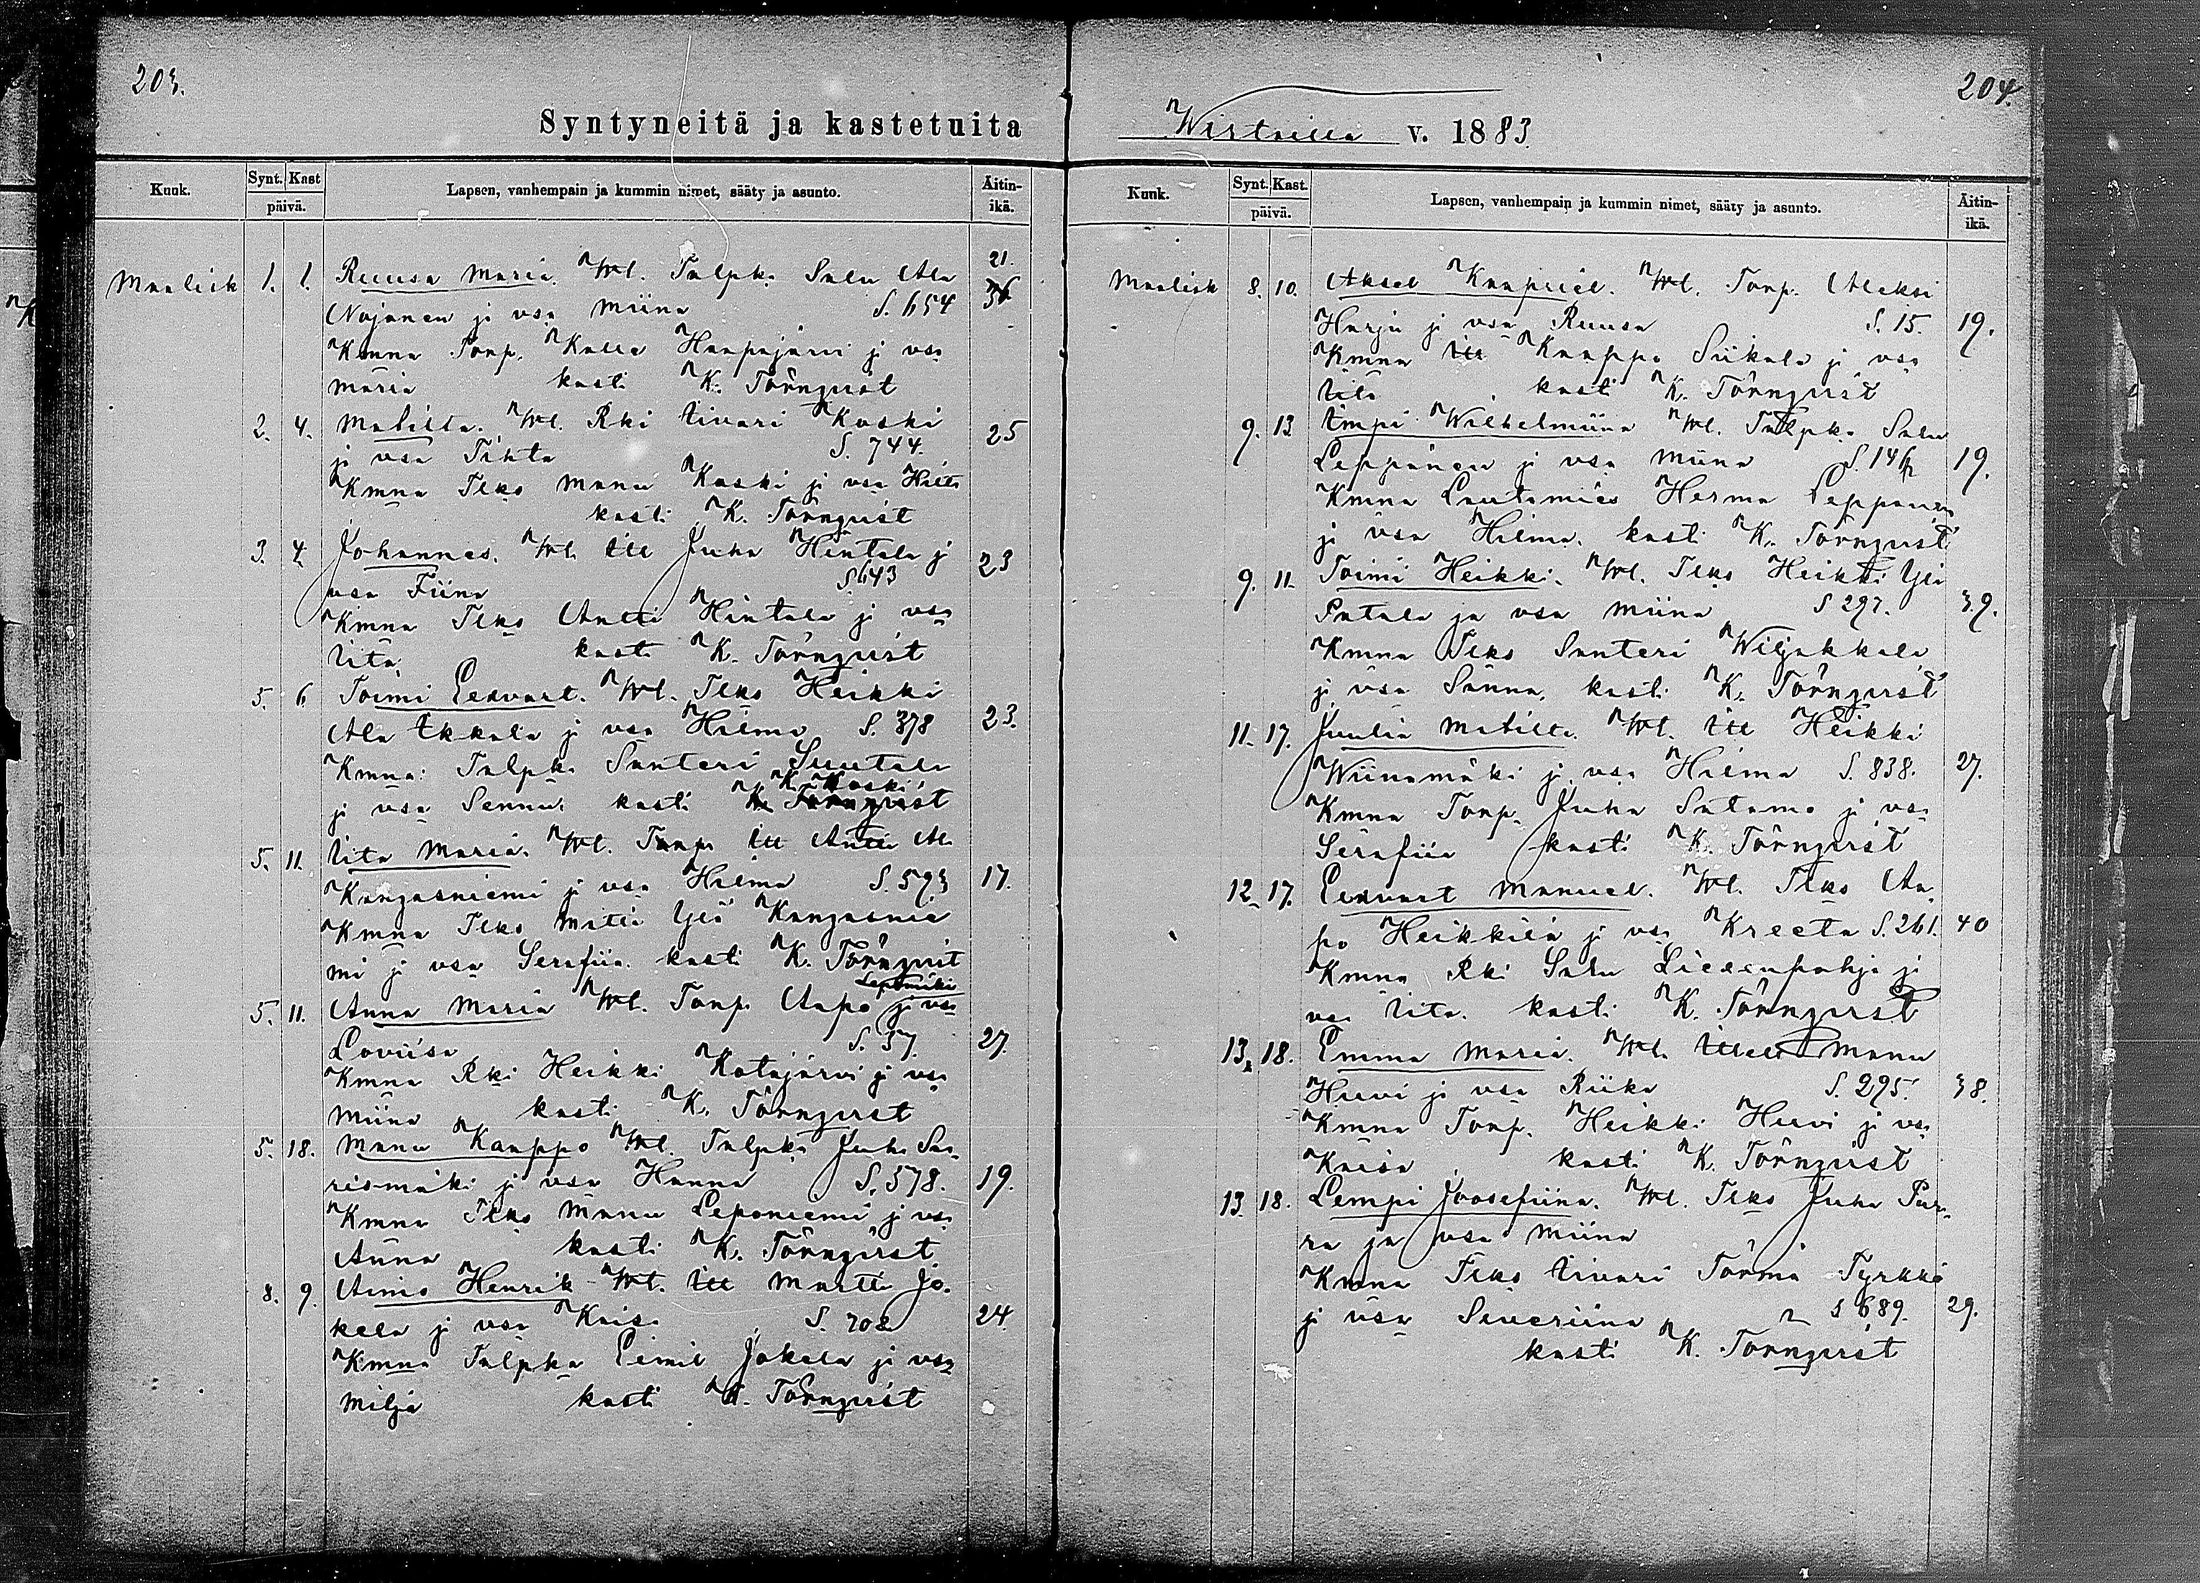 203.
Syntyneitä ja kastetuita
Kuuk.
Synt. Kast
päivä.
Lapsen, vanhempain ja kummin nimet, sääty ja asunto.
Äitin-
ikä.
21.
Maalisk 1. 1. Ruusa Maria. Wl. Talpka Salu Ala
Nojanen ja vsa Miina S. 654
Kmna Torp. Kalle Haapajärvi ja vsa
Maria kasti K. Törnqvist
2. 4. Matilta. Wl. Rki Iivari Koski 25
ja vsa Tihta S. 744.
Kmna Tlks Manu Koski ja vsa
kasti K. Törnqvist
3. 4. Johannes. Wl. Itl Juha Hintala j 23
vsa Fiina S 643
Kmna Tlks Antti Hintala ja vsa
Iita kasti K. Törnqvist
5. 6 Toimi Eedvart. Wl. Tlks Heikki
Ala Ikkala ja vsa Hilma S. 378 23.
Kmna: Talpk. Santeri Suutala
K. Koski
ja vsa Sanna kasti K. Törnqvist
5. 11. Iita Maria. Wl. Torp. Itl Antti Al.
Kangasniemi ja vsa Hilma S. 593 17.
Kmna Tlks Matti Yli Kangasnie
mi ja vsa Serafiia. kasti K. Törnqvist
Lepomäki
5. 11. Anna Maria Wl. Torp. Aapo ja vsa
Loviisa S. 37. 27.
Kmna Rki Heikki Kotajärvi ja vsa
Miina kasti K. Törnqvist
5. 18. Manu Kaappo Wl. Talpka Juha Saa
rismäki ja vsa Hanna S. 578. 19.
Kmna Tlks Manu Leponiemi ja vsa
Anna kasti K. Törnqvist
8. 9. Aimo Henrik Wl. Itl Martti Jo-
kela ja vsa Kaisa S. 708 24.
Kmna Talpka Eemil Jokela ja vsa
Milja kasti K. Törnqvist
204.
Wirtailla v. 1883.
Kuuk.
Synt. Kast.
päivä.
Lapsen, vanhempain ja kummin nimet, sääty ja asunto.
Äitin-
ikä.
Maalisk 8. 10. Aksel Kaapriel. Wl. Torp. Aleksi
Harju ja vsa Ruusa S. 15. 19.
Kmna Itl Kaappo Siikala ja vsa
kasti K. Törnqvist
9. 13 Impi Wilhelmiina Wl. Talpka Salu
Leppänen ja vsa Miina 19.
Kmna Lautamies Herma Leppänen
ja vsa Hilma. kasti K. Törnqvist
9. 11. Toimi Heikki. Wl. Tlks Heikki Yli
Patala ja vsa Miina S 297. 39.
Kmna Tlks Santeri Wiljakkala
ja vsa Sanna, kasti K. Törnqvist
11. 17. Juulia Matilta. Wl. Itl Heikki
Wiinamäki ja vsa Hilma S. 838. 27.
Kmna Torp. Juha Satamo ja vsa
Serafiia kasti K. Törnqvist
12. 17. Eedvart Manuel. Wl. Tlks Aa
po Heikkilä ja vsa Kreeta S. 261. 40
Kmna Rki Salu Liesenpohja ja
vsa Iita. kasti K. Törnqvist
13. 18. Emma Maria. Wl. Manu
Hervi ja vsa Riika S. 295. 38.
Kmna Torp. Heikki Hervi ja vsa
Kaisa kasti K. Törnqvist
13. 18. Lempi Joosefiina. Wl. Tlks Juha Pur-
ra ja vsa Miina
Kmna Tlks Iivari Törmä Tyrkkö
ja vsa Severiina S 689. 29.
kasti K. Törnqvist